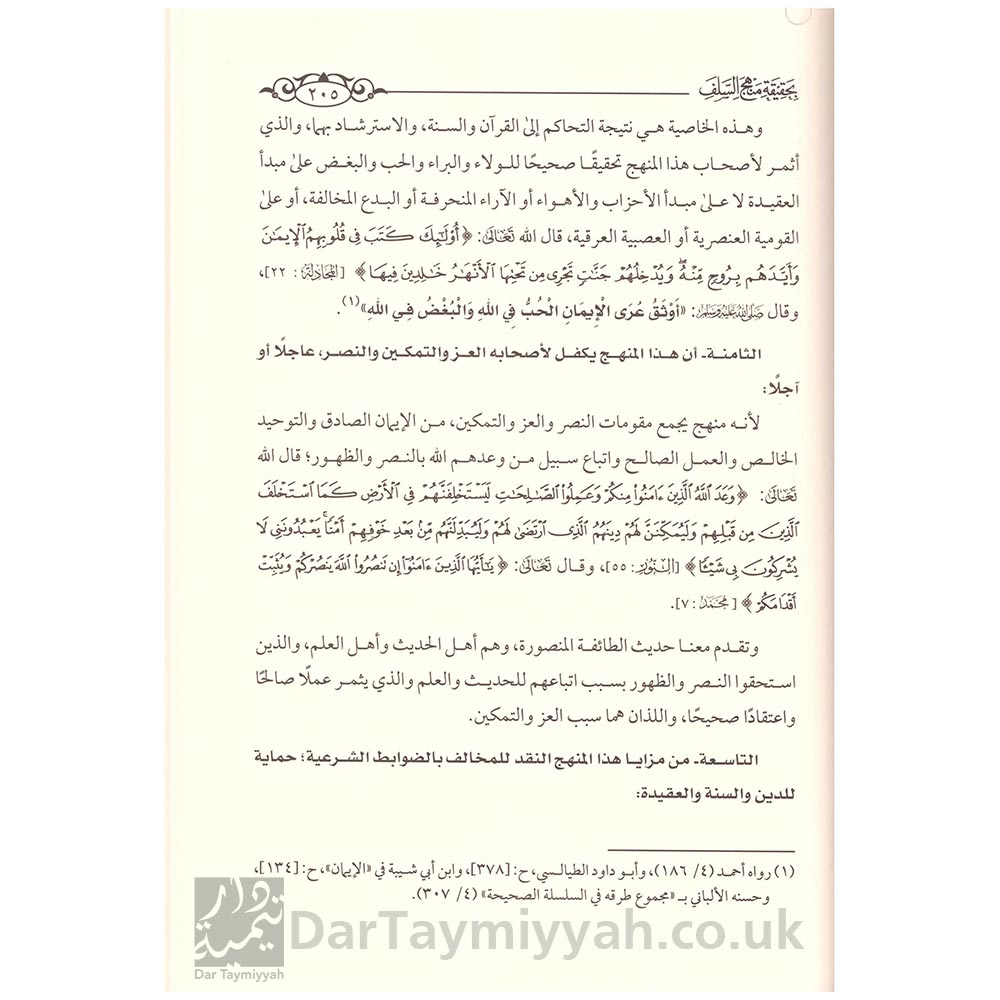 بحقيقة منهج السلف
٢٠٥
وهذه الخاصية هي نتيجة التحاكم إلى القرآن والسنة، والاسترشاد بهما، والذي
أثمر لأصحاب هذا المنهج تحقيقًا صحيحًا للولاء والبراء والحب والبغض على مبدأ
العقيدة لا على مبدأ الأحزاب والأهواء أو الآراء المنحرفة أو البدع المخالفة، أو على
القومية العنصرية أو العصبية العرقية، قال الله تَعَالَى: ﴿أُوْلَٰٓئِكَ كَتَبَ فِى قُلُوبِهِمُ ٱلْإِيمَٰنَ
وَأَيَّدَهُم بِرُوحٍ مِّنْهُ ۖ وَيُدْخِلُهُمْ جَنَّٰتٍ تَجْرِى مِن تَحْتِهَا ٱلْأَنْهَٰرُ خَٰلِدِينَ فِيهَا﴾ [المجادلة: ٢٢]،
وقال صَلَّى اللَّهُ عَلَيْهِ وَسَلَّمَ: «أَوْثَقُ عُرَى الْإِيمَانِ الْحُبُّ فِي اللهِ وَالْبُغْضُ فِي اللهِ»(١).
الثامنة- أن هذا المنهج يكفل لأصحابه العز والتمكين والنصر، عاجلًا أو
آجلًا:
لأنه منهج يجمع مقومات النصر والعز والتمكين، من الإيمان الصادق والتوحيد
الخالص والعمل الصالح واتباع سبيل من وعدهم الله بالنصر والظهور؛ قال الله
تَعَالَى: ﴿وَعَدَ ٱللَّهُ ٱلَّذِينَ ءَامَنُوا۟ مِنكُمْ وَعَمِلُوا۟ ٱلصَّٰلِحَٰتِ لَيَسْتَخْلِفَنَّهُمْ فِى ٱلْأَرْضِ كَمَا ٱسْتَخْلَفَ
ٱلَّذِينَ مِن قَبْلِهِمْ وَلَيُمَكِّنَنَّ لَهُمْ دِينَهُمُ ٱلَّذِى ٱرْتَضَىٰ لَهُمْ وَلَيُبَدِّلَنَّهُم مِّنۢ بَعْدِ خَوْفِهِمْ أَمْنًا ۚ يَعْبُدُونَنِى لَا
يُشْرِكُونَ بِى شَيْـًٔا﴾ [النور: ٥٥]، وقال تَعَالَى: ﴿يَٰٓأَيُّهَا ٱلَّذِينَ ءَامَنُوٓا۟ إِن تَنصُرُوا۟ ٱللَّهَ يَنصُرْكُمْ وَيُثَبِّتْ
أَقْدَامَكُمْ﴾ [محمد: ٧].
وتقدم معنا حديث الطائفة المنصورة، وهم أهل الحديث وأهل العلم، والذين
استحقوا النصر والظهور بسبب اتباعهم للحديث والعلم والذي يثمر عملًا صالحًا
واعتقادًا صحيحًا، واللذان هما سبب العز والتمكين.
التاسعة- من مزايا هذا المنهج النقد للمخالف بالضوابط الشرعية؛ حماية
للدين والسنة والعقيدة:
(١) رواه أحمد (٤/ ١٨٦)، وأبو داود الطيالسي، ح: [٣٧٨]، وابن أبي شيبة في «الإيمان»، ح: [١٣٤]،
وحسنه الألباني بـ «مجموع طرقه في السلسلة الصحيحة» (٤/ ٣٠٧).
دار تيمية
Dar Taymiyyah
DarTaymiyyah.co.uk